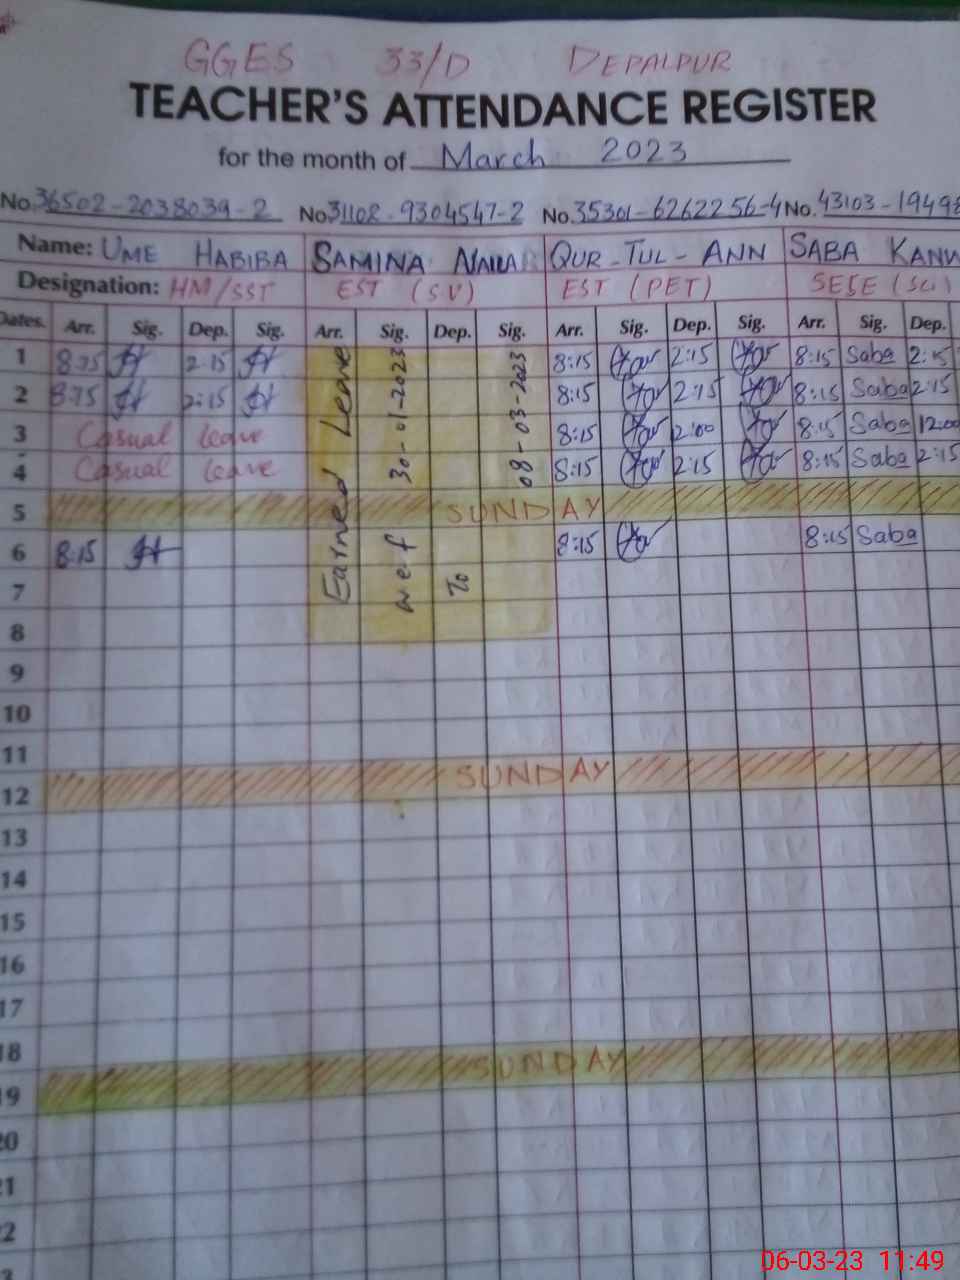 GGES 33/D DEPALPUR
TEACHER'S ATTENDANCE REGISTER
for the month of March 2023
No. 36502-2038039-2 No. 31102-9304547-2 No. 35301-6262256-4 No. 43103-19498
Name: UME HABIBA SAMINA QUR-TUL-ANN SABA KANW
Designation: HM/SST EST (S.V) EST (PET) SESE (Sci)
Dates. Arr. Sig. Dep. Sig. Arr. Sig. Dep. Sig. Arr. Sig. Dep. Sig. Arr. Sig. Dep.
1 8:15 2:15 8:15 2:15 8:15 Saba 2:15
2 8:15 2:15 8:15 2:15 8:15 Saba 2:15
3 Casual leave 8:15 2:00 8:15 Saba 12:00
4 Casual leave 8:15 2:15 8:15 Saba 2:15
Earned Leave
w.e.f 30-01-2023
To 08-03-2023
5 SUNDAY
6 8:15 8:15 8:15 Saba
7
8
9
10
11
12 SUNDAY
13
14
15
16
17
18
19 SUNDAY
20
21
22
06-03-23 11:49